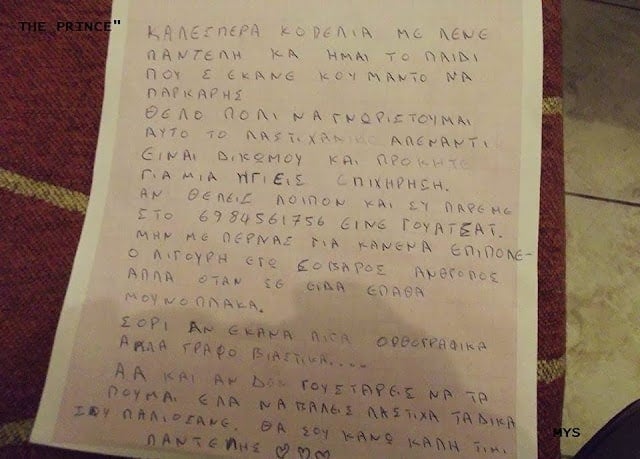 THE PRINCE"
ΚΑΛΕΣΠΕΡΑ ΚΟΠΕΛΙΑ ΜΕ ΛΕΝΕ
ΠΑΝΤΕΛΗ ΚΑ ΗΜΑΙ ΤΟ ΠΑΙΔΙ
ΠΟΥ Σ ΕΚΑΝΕ ΚΟΥΜΑΝΤΟ ΝΑ
ΠΑΡΚΑΡΗΣ
ΘΕΛΟ ΠΟΛΙ ΝΑ ΓΝΩΡΙΣΤΟΥΜΑΙ
ΑΥΤΟ ΤΟ ΛΑΣΤΙΧΑΔΙΚΟ ΑΠΕΝΑΝΤΙ
ΕΙΝΑΙ ΔΙΚΩΜΟΥ ΚΑΙ ΠΡΟΚΗΤΕ
ΓΙΑ ΜΙΑ ΗΓΙΕΙΣ ΕΠΙΧΗΡΗΣΗ.
ΑΝ ΘΕΛΕΙΣ ΛΟΙΠΟΝ ΚΑΙ ΣΥ ΠΑΡΕ ΜΕ
ΣΤΟ 6984561756 ΕΙΝΕ ΓΟΥΑΤΣΑΤ.
ΜΗΝ ΜΕ ΠΕΡΝΑΣ ΓΙΑ ΚΑΝΕΝΑ ΕΠΙΠΟΛΕ-
Ο ΛΙΓΟΥΡΗ ΕΓΩ ΣΟΒΑΡΟΣ ΑΝΘΡΟΠΟΣ
ΑΛΛΑ ΟΤΑΝ ΣΕ ΕΙΔΑ ΕΠΑΘΑ
ΜΟΥΝΟΠΛΑΚΑ.
ΣΟΡΙ ΑΝ ΕΚΑΝΑ ΛΙΓΑ ΟΡΘΟΓΡΑΦΙΚΑ
ΑΛΛΑ ΓΡΑΦΟ ΒΙΑΣΤΙΚΑ....
Α.Α ΚΑΙ ΑΝ ΔΕΣ ΓΟΥΣΤΑΡΕΙΣ ΝΑ ΤΑ
ΠΟΥΜΑΙ ΕΛΑ ΝΑ ΒΑΛΕΙΣ ΛΑΣΤΙΧΑ ΤΑ ΔΙΚΑ
ΣΟΥ ΠΑΛΙΟΣΑΝΕ. ΘΑ ΣΟΥ ΚΑΝΩ ΚΑΛΗ ΤΙΜΙ.
ΠΑΝΤΕΛΗΣ ♡♡♡
MYS